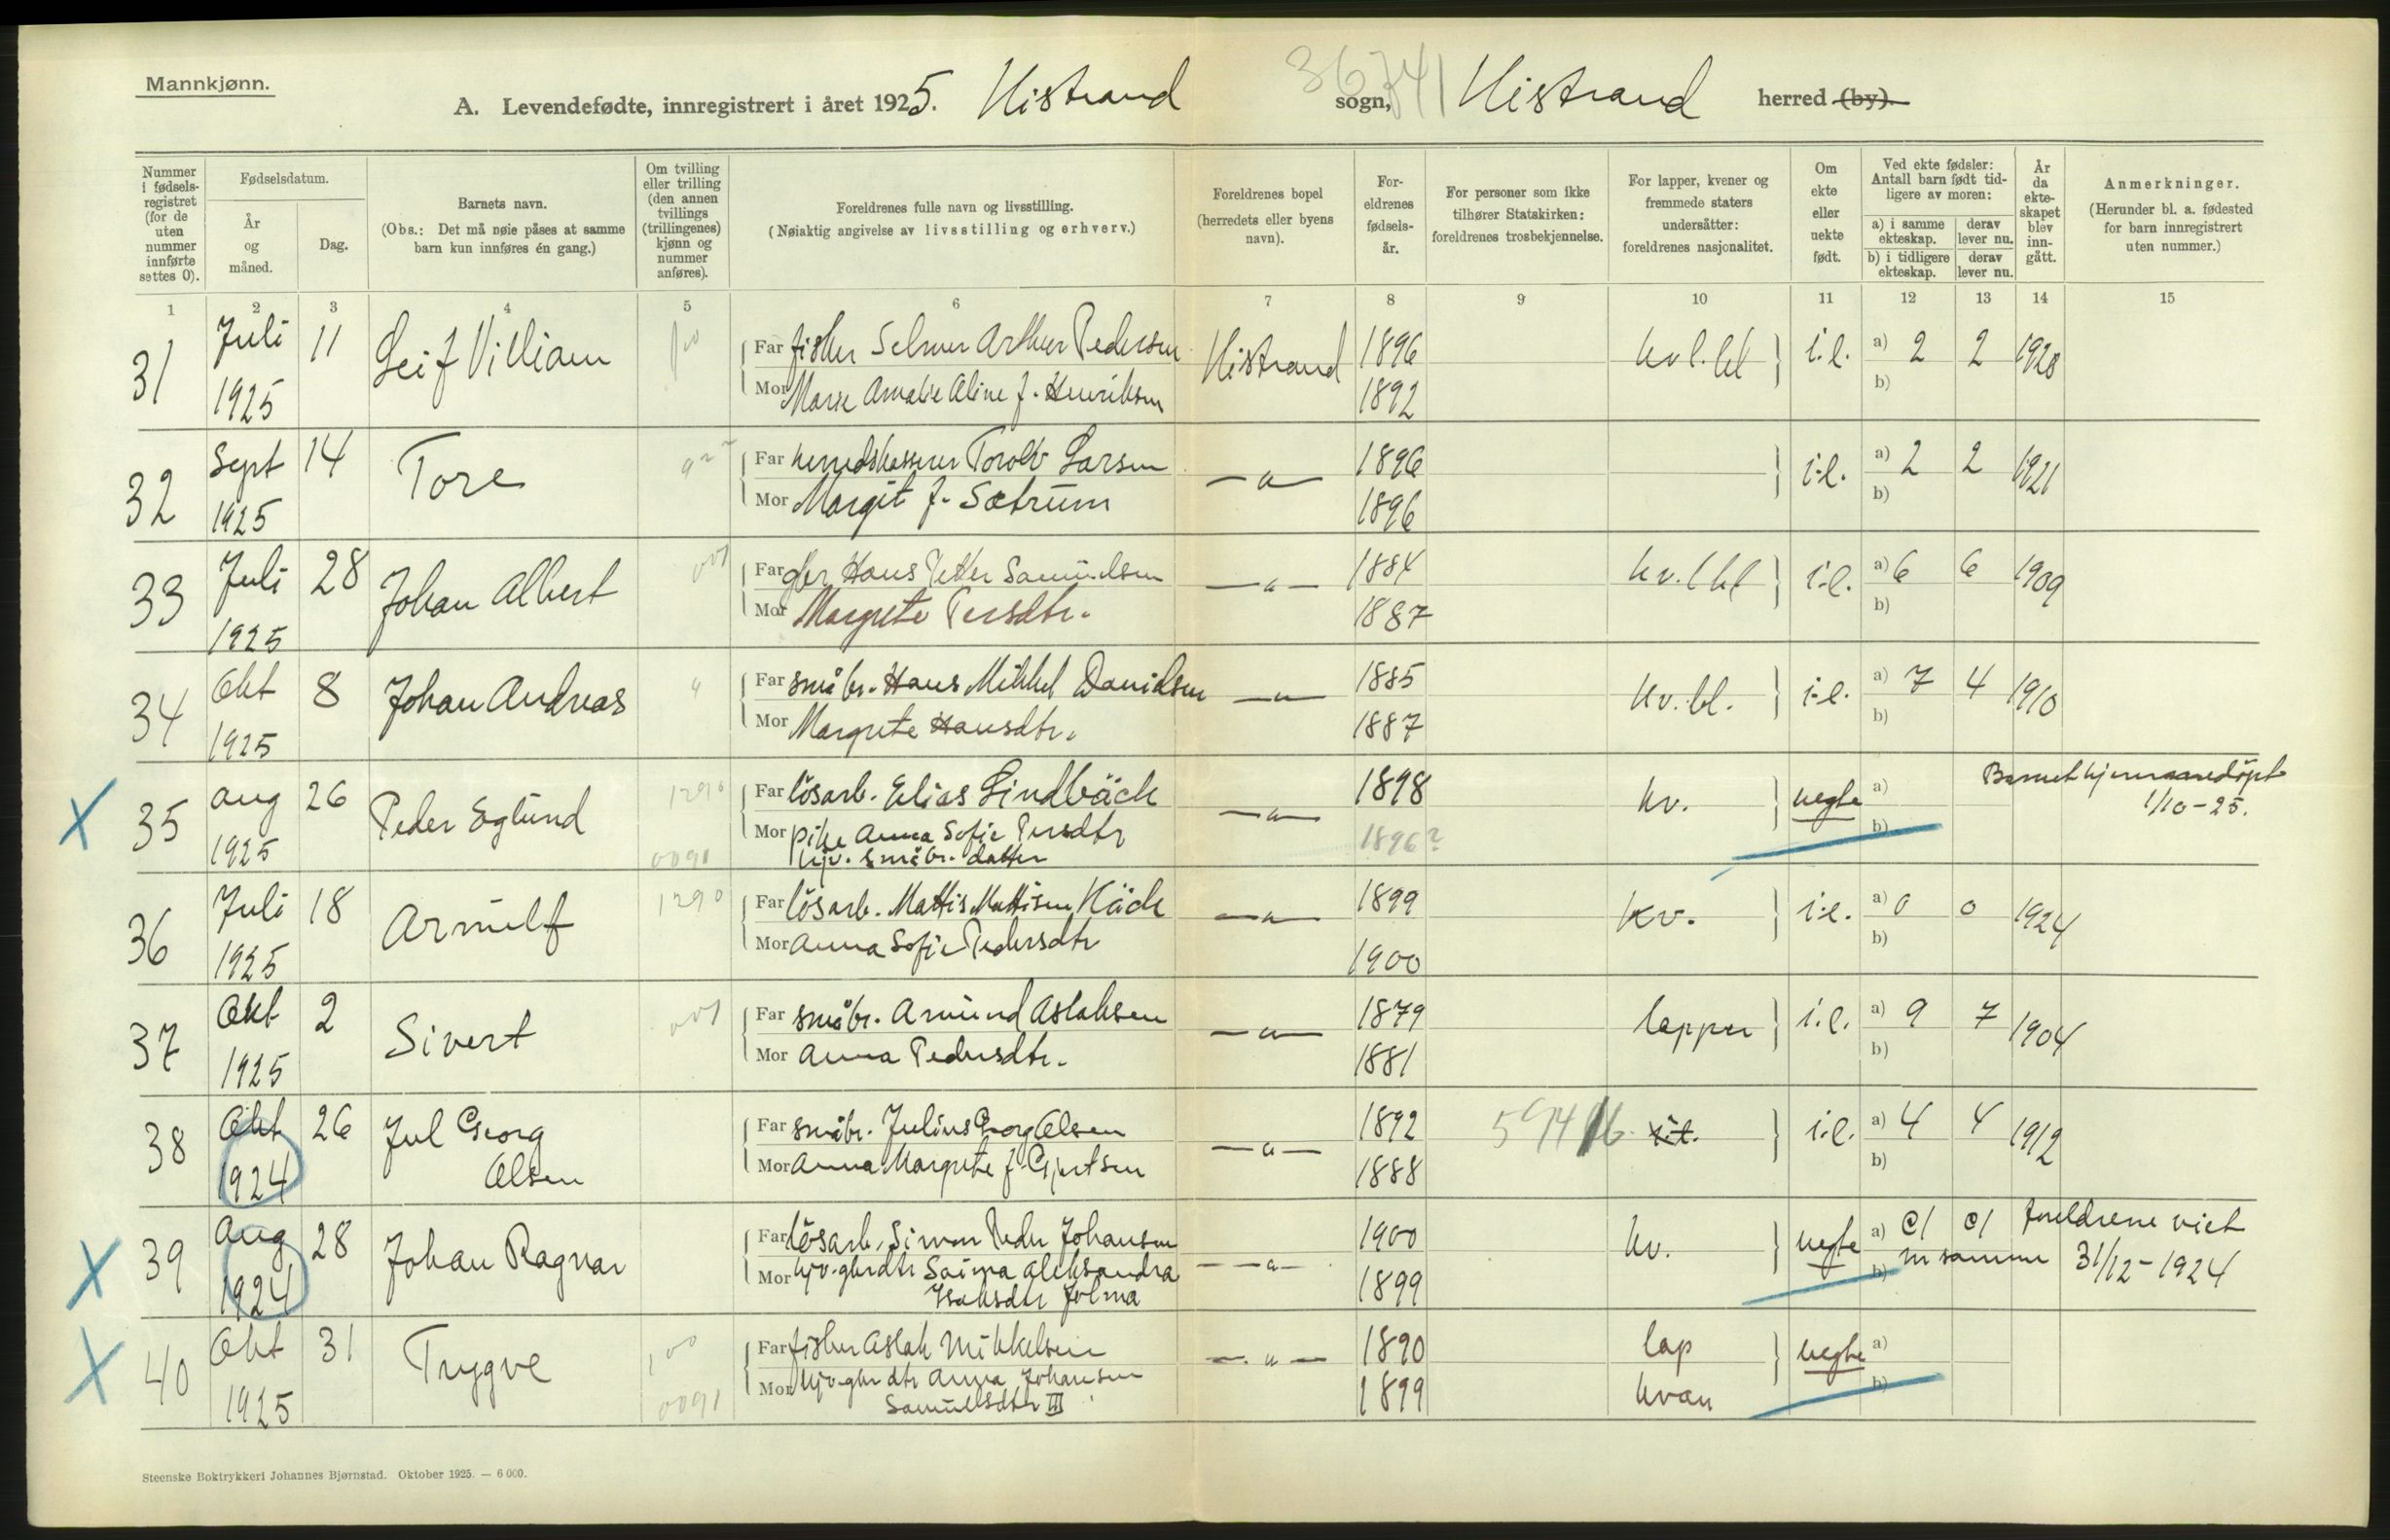 Mannkjønn.
A. Levendefødte, innregistrert i året 1925. Kistrand sogn, Kistrand herred (by).
36741
Nummer i fødsels-registret (for de uten nummer innførte settes 0).
Fødselsdatum.
År og måned.
Dag.
Barnets navn.
(Obs.: Det må nøie påses at samme barn kun innføres én gang.)
Om tvilling eller trilling (den annen tvillings (trillingenes) kjønn og nummer anføres).
Foreldrenes fulle navn og livsstilling.
(Nøiaktig angivelse av livsstilling og erhverv.)
Foreldrenes bopel (herredets eller byens navn).
For-eldrenes fødsels-år.
For personer som ikke tilhører Statskirken: foreldrenes trosbekjennelse.
For lapper, kvener og fremmede staters undersåtter: foreldrenes nasjonalitet.
Om ekte eller uekte født.
Ved ekte fødsler: Antall barn født tid-ligere av moren:
a) i samme ekteskap.
derav lever nu.
b) i tidligere ekteskap.
derav lever nu.
År da ekte-skapet blev inn-gått.
Anmerkninger.
(Herunder bl. a. fødested for barn innregistrert uten nummer.)
1 2 3 4 5 6 7 8 9 10 11 12 13 14 15
31 Juli 1925 11 Leif Villiam Far fisker Selmer Arthur Pedersen Kistrand 1896 kv l. bl i.e. a) 2 2 1920
Mor Marie Amalie Aline f. Henriksen 1892 b)
32 Sept 1925 14 Tore Far herredskasserer Torolv Larsen — " — 1896 i.e. a) 2 2 1921
Mor Margit f. Sætrum 1896 b)
33 Juli 1925 28 Johan Albert Far gbr Hans Peter Samuelsen — " — 1884 kv. l bl i.e. a) 6 6 1909
Mor Margrete Persdtr. 1887 b)
34 Okt 1925 8 Johan Andreas Far småbr. Hans Mikkel Danielsen — " — 1885 kv. bl. i.e. a) 7 4 1910
Mor Margrete Hansdtr. 1887 b)
35 Aug 1925 26 Peder Eglund 1290 Far lösarb. Elias Lindbäck — " — 1898 kv. uegte a) Barnet hjemmedöpt 1/10-25.
0091 Mor pike Anna Sofie Persdtr 1896? b)
hjv. småbr. datter
36 Juli 1925 18 Arnulf 1290 Far lösarb. Mattis Mattisen Käck — " — 1899 kv. i.e. a) 0 0 1924
Mor Anna Sofie Pedersdtr 1900 b)
37 Okt 1925 2 Sivert 001 Far småbr. Amund Aslaksen — " — 1879 lapper i.e. a) 9 7 1904
Mor Anna Pedersdtr. 1881 b)
38 Okt 1924 26 Jul Georg Olsen Far småbr. Julius Georg Olsen — " — 1892 i.e. a) 4 4 1912
Mor Anna Margrete f. Gjertsen 1888 b)
39 Aug 1924 28 Johan Ragnar Far lösarb. Simon Peder Johansen — " — 1900 kv. uegte a) foreldrene viet
Mor hjv. gbrdtr Saima Aleksandra 1899 b) m samme 31/12-1924
Isaksdtr Jolma
40 Okt 1925 31 Trygve 100 Far fisker Aslak Mikkelsen — " — 1890 lap uegte a)
0091 Mor hjv gbr dtr Anna Johansen 1899 kvæn b)
Samuelsdtr III
Steenske Boktrykkeri Johannes Bjørnstad. Oktober 1925. — 6 000.